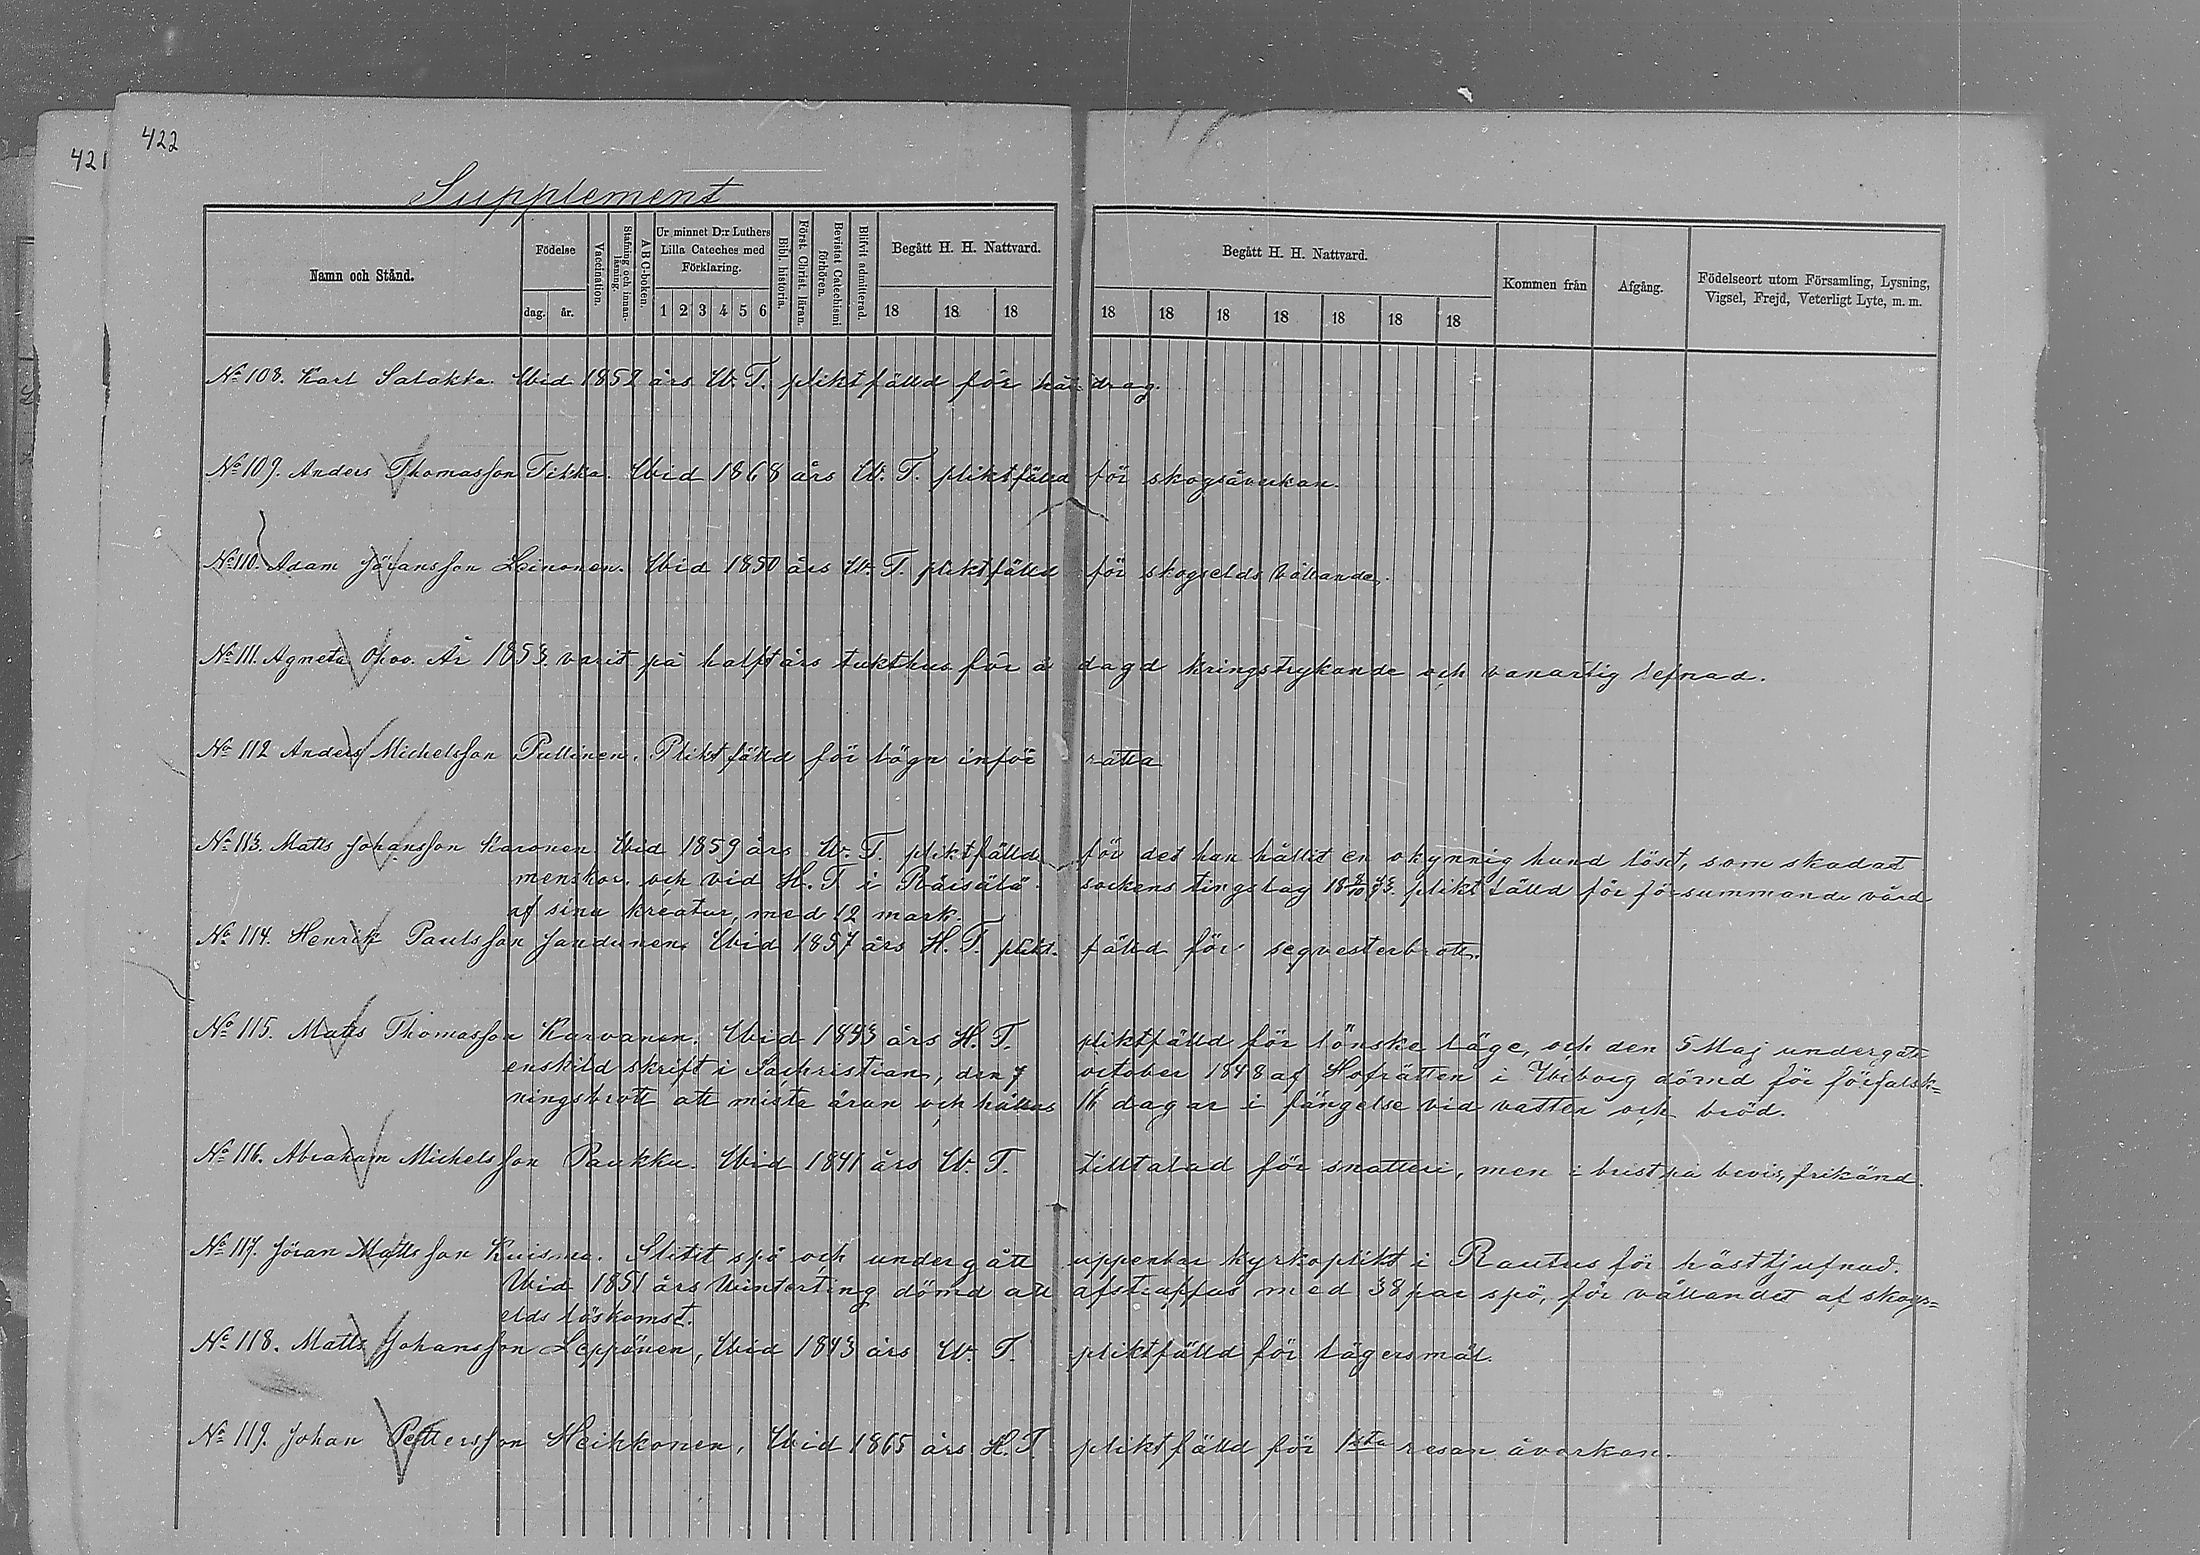 422
421
Supplement
Namn och Stånd.
Födelse
dag.
år.
Vaccination.
Stafning och innan-läsning.
ABC-boken.
Ur minnet D:r Luthers Lilla Cateches med Förklaring.
1 2 3 4 5 6
Bibl. historia.
Först. Christ. läran.
Bevistat Catechismi förhören.
Blifvit admitterad.
Begått H. H. Nattvard.
18 18 18
Begått H. H. Nattvard.
18 18 18 18 18 18 18
Kommen från
Afgång.
Födelseort utom Församling, Lysning, Vigsel, Frejd, Veterligt Lyte, m. m.
No 108. Karl Salakka. Wid 1852 års W. T. pliktfälld för hårdrag.
No 109. Anders Thomasson Tikka. Wid 1868 års W. T. pliktfälld för skogsåverkan.
No 110. Adam Jöransson Leinonen. Wid 1850 års W. T. pliktfälld för skogselds vållande.
No 111. Agneta Ohvo. År 1853 varit på halft års tukthus för å dagd kringstrykande och vanartig lefnad.
No 112 Anders Michelsson Pullinen. Pliktfälld för lögn inför rätta
No 113. Matts Johansson Karonen. Wid 1859 års W. T. pliktfälld för det han hållit en okynnig hund löst, som skadat
menskor. och vid H. T i Räisälä sockens tingslag 18 8/10 73. plikt fälld för försummande vård
af sina kreatur, med 12 mark.
No 114. Henrik Paulsson Jandunen. Wid 1857 års H. T. plikt-fälld för seqvesterbrott.
No 115. Matts Thomasson Karvanen. Wid 1843 års H. T. pliktfälld för lönske läge, och den 5 Maj undergått
enskild skrift i Sachristian, den 7 october 1848 af Hofrätten i Wiborg dömd för förfalsk=
ningsbrott att mista äran och hållas 16 dagar i fängelse vid vatten och bröd.
No 116. Abraham Michelsson Paukku. Wid 1841 års W. T. tilltalad för snatteri, men i brist på bevis, frikänd.
No 117. Jöran Mattsson Kuisma. Slitit spö och undergått uppenbar kyrkoplikt i Rautus för hästtjufnad.
Wid 1851 års Winterting dömd att afstraffas med 38 par spö, för vållandet af skogs=
elds löskomst.
No 118. Matts Johansson Leppänen, Wid 1843 års W. T. pliktfälld för lägersmål.
No 119. Johan Pettersson Heikkonen, Wid 1865 års H. T. pliktfälld för 1sta resan åverkan.